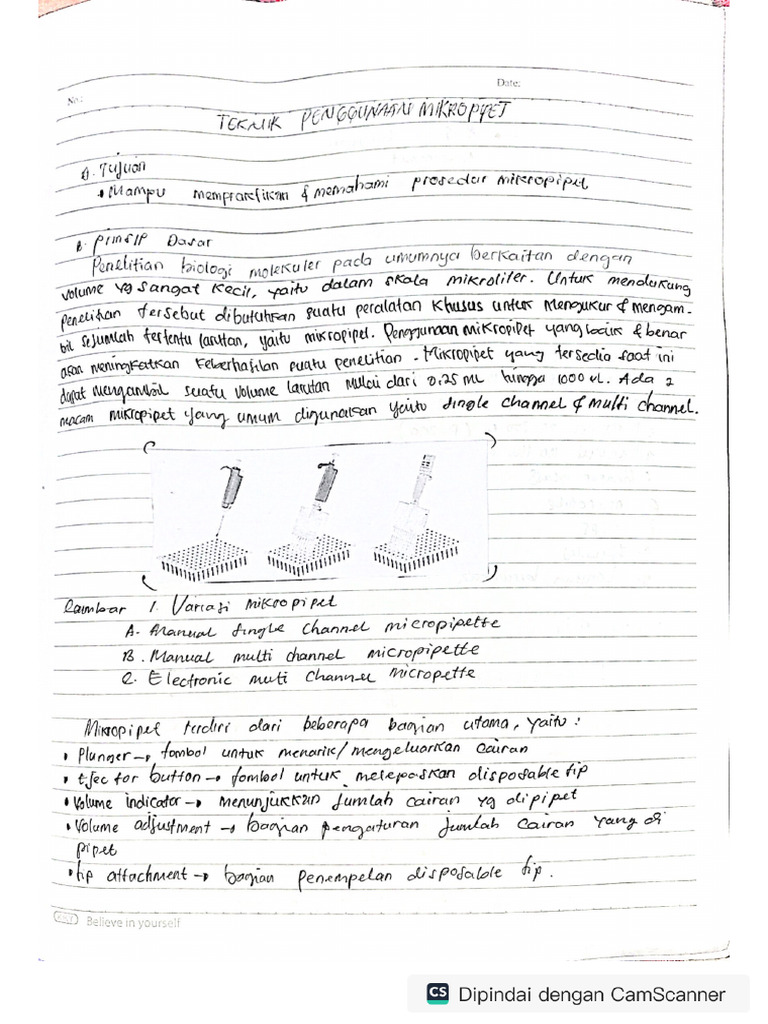 No.:
Date:
TEKNIK PENGGUNAAN MIKROPIPET
A. Tujuan
• Mampu mempraktikan & memahami prosedur mikropipet
B. Prinsip Dasar
Penelitian biologi molekuler pada umumnya berkaitan dengan
volume yg sangat kecil, yaitu dalam skala mikroliter. Untuk mendukung
penelitian tersebut dibutuhkan suatu peralatan khusus untuk mengukur & mengam-
bil sejumlah tertentu larutan, yaitu mikropipet. Penggunaan mikropipet yang baik & benar
akan meningkatkan keberhasilan suatu penelitian. Mikropipet yang tersedia saat ini
dapat mengambil suatu volume larutan mulai dari 0.25 ml hingga 1000 ul. Ada 2
macam mikropipet yang umum digunakan yaitu single channel & multi channel.
Gambar 1. Variasi mikropipet
A. Manual single channel micropipette
B. Manual multi channel micropipette
C. Electronic muti channel micropette
Mikropipet terdiri dari beberapa bagian utama, yaitu :
• Plunger → tombol untuk menarik/mengeluarkan cairan
• Ejector button → tombol untuk melepaskan disposable tip
• Volume indicator → menunjukkan jumlah cairan yg dipipet
• Volume adjustment → bagian pengaturan jumlah cairan yang di
pipet
• tip attachment → bagian penempelan disposable tip.
Believe in yourself
CS Dipindai dengan CamScanner